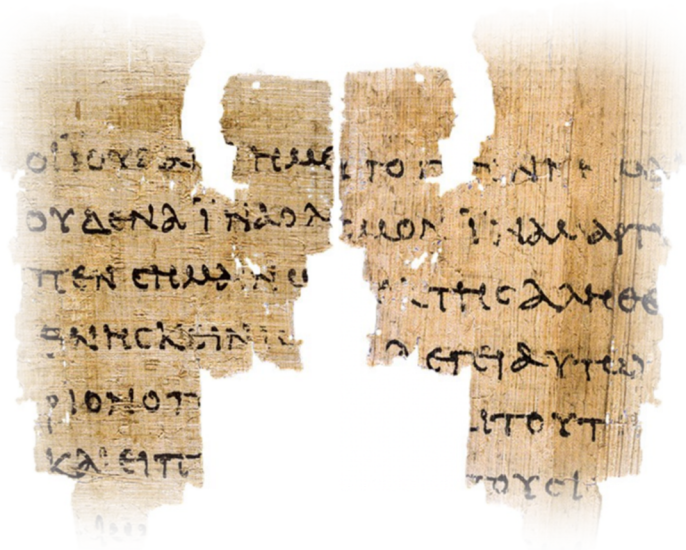 ΟΙ ΙΟΥΔΑΙ ΗΜΕ
ΟΥΔΕΝΑ ΪΝΑ Ο Λ
ΠΕΝ CΗΜΑΙΝΩ
ΘΝΗCΚΕΙΝ ΙC
ΡΙΟΝ Ο Π
ΚΑΙ ΕΙΠ
ΤΟ Γ
CΜΟΝ ΪΝΑ ΜΑΡΤΥ
ΤΗC ΑΛΗΘΕ
ΛΕΓΕΙ ΑΥΤΩ
ΑΙ ΤΟΥΤ
ΤΟΥC Ι